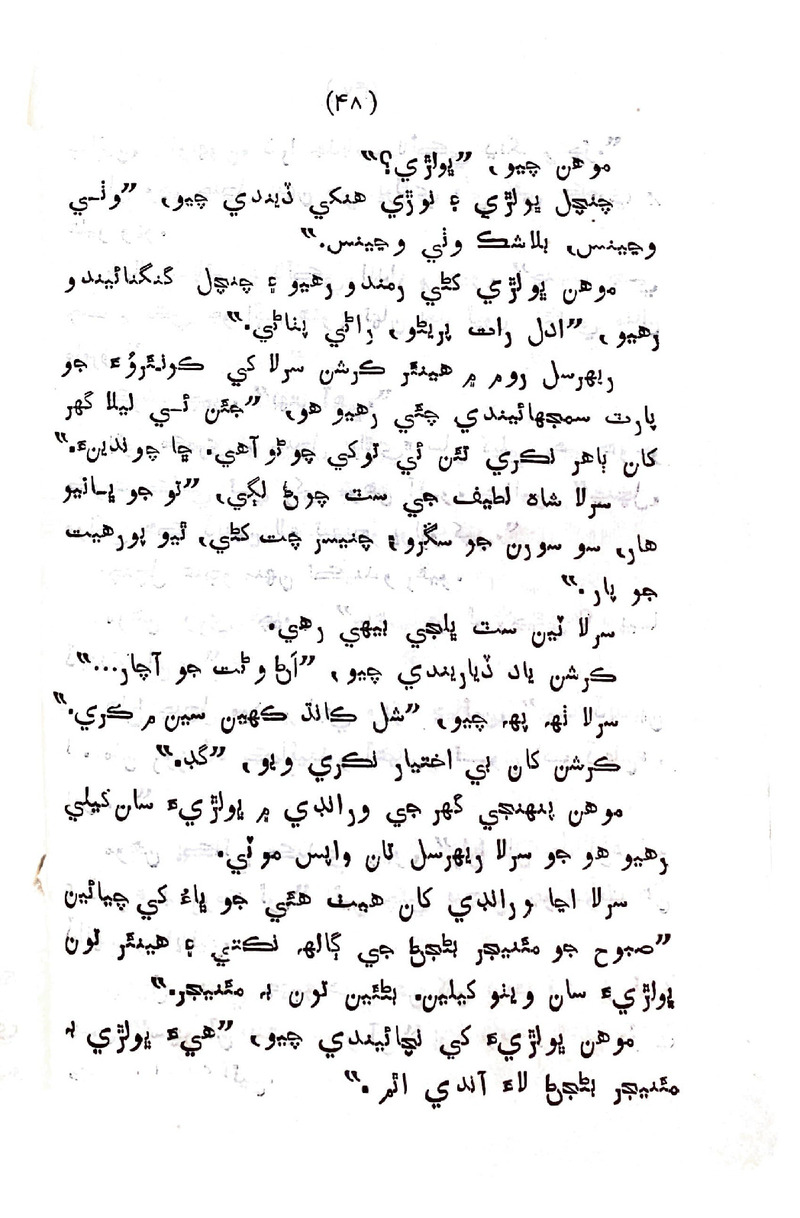 (۴۸)
موهن چيو، ”ڀولڙي؟“
چنچل ڀولڙي ۽ نوڙي هنکي ڏيندي چيو، ”وٺي
وڃينس، بلاشڪ وٺي وڃينس.“
موهن ڀولڙي کڻي رمندو رهيو ۽ چنچل گنگنائيندو
رهيو، ”ادل رات پريڻو، راڻي پناڻي.“
رهرسل روم ۾ هينئر ڪرشن سرلا کي ڪونئروُءَ جو
پارٽ سمجهائيندي چئي رهيو هو، ”جئن ئي ليلا گهر
کان ٻاهر نڪري تئن ئي توکي چوڻو آهي. ڇا چوندينءَ.“
سرلا شاه لطيف جي ست چوڻ لڳي، ”تو جو ڀانيو
هار، سو سورن جو سڱرو؛ چنيسر چت کڻي، ٿيو پورهيت
جو پار.“
سرلا ٽين ست ڀلجي بيهي رهي.
ڪرشن ياد ڏياريندي چيو، ”اَڻ وڻت جو آچار...“
سرلا ٺهہ پهہ چيو، ”شل ڪانڌ ڪهين سين م ڪري.“
ڪرشن کان بي اختيار نڪري ويو، ”گڊ.“
موهن پنهنجي گهر جي ورانڊي ۾ ڀولڙيءَ سان کيلي
رهيو هو جو سرلا رهرسل تان واپس موٽي.
سرلا اڃا ورانڊي کان هيٺ هئي جو ڀاءُ کي چيائين
”صبوح جو مئنيجر بڻجڻ جي ڳالهہ نڪتي ۽ هينئر تون
ڀولڙيءَ سان ويٺو کيلين. بڻئين تون بہ مئنيجر.“
موهن ڀولڙيءَ کي نچائيندي چيو، ”هيءَ ڀولڙي بہ
مئنيجر بڻجڻ لاءِ آندي اٿم.“